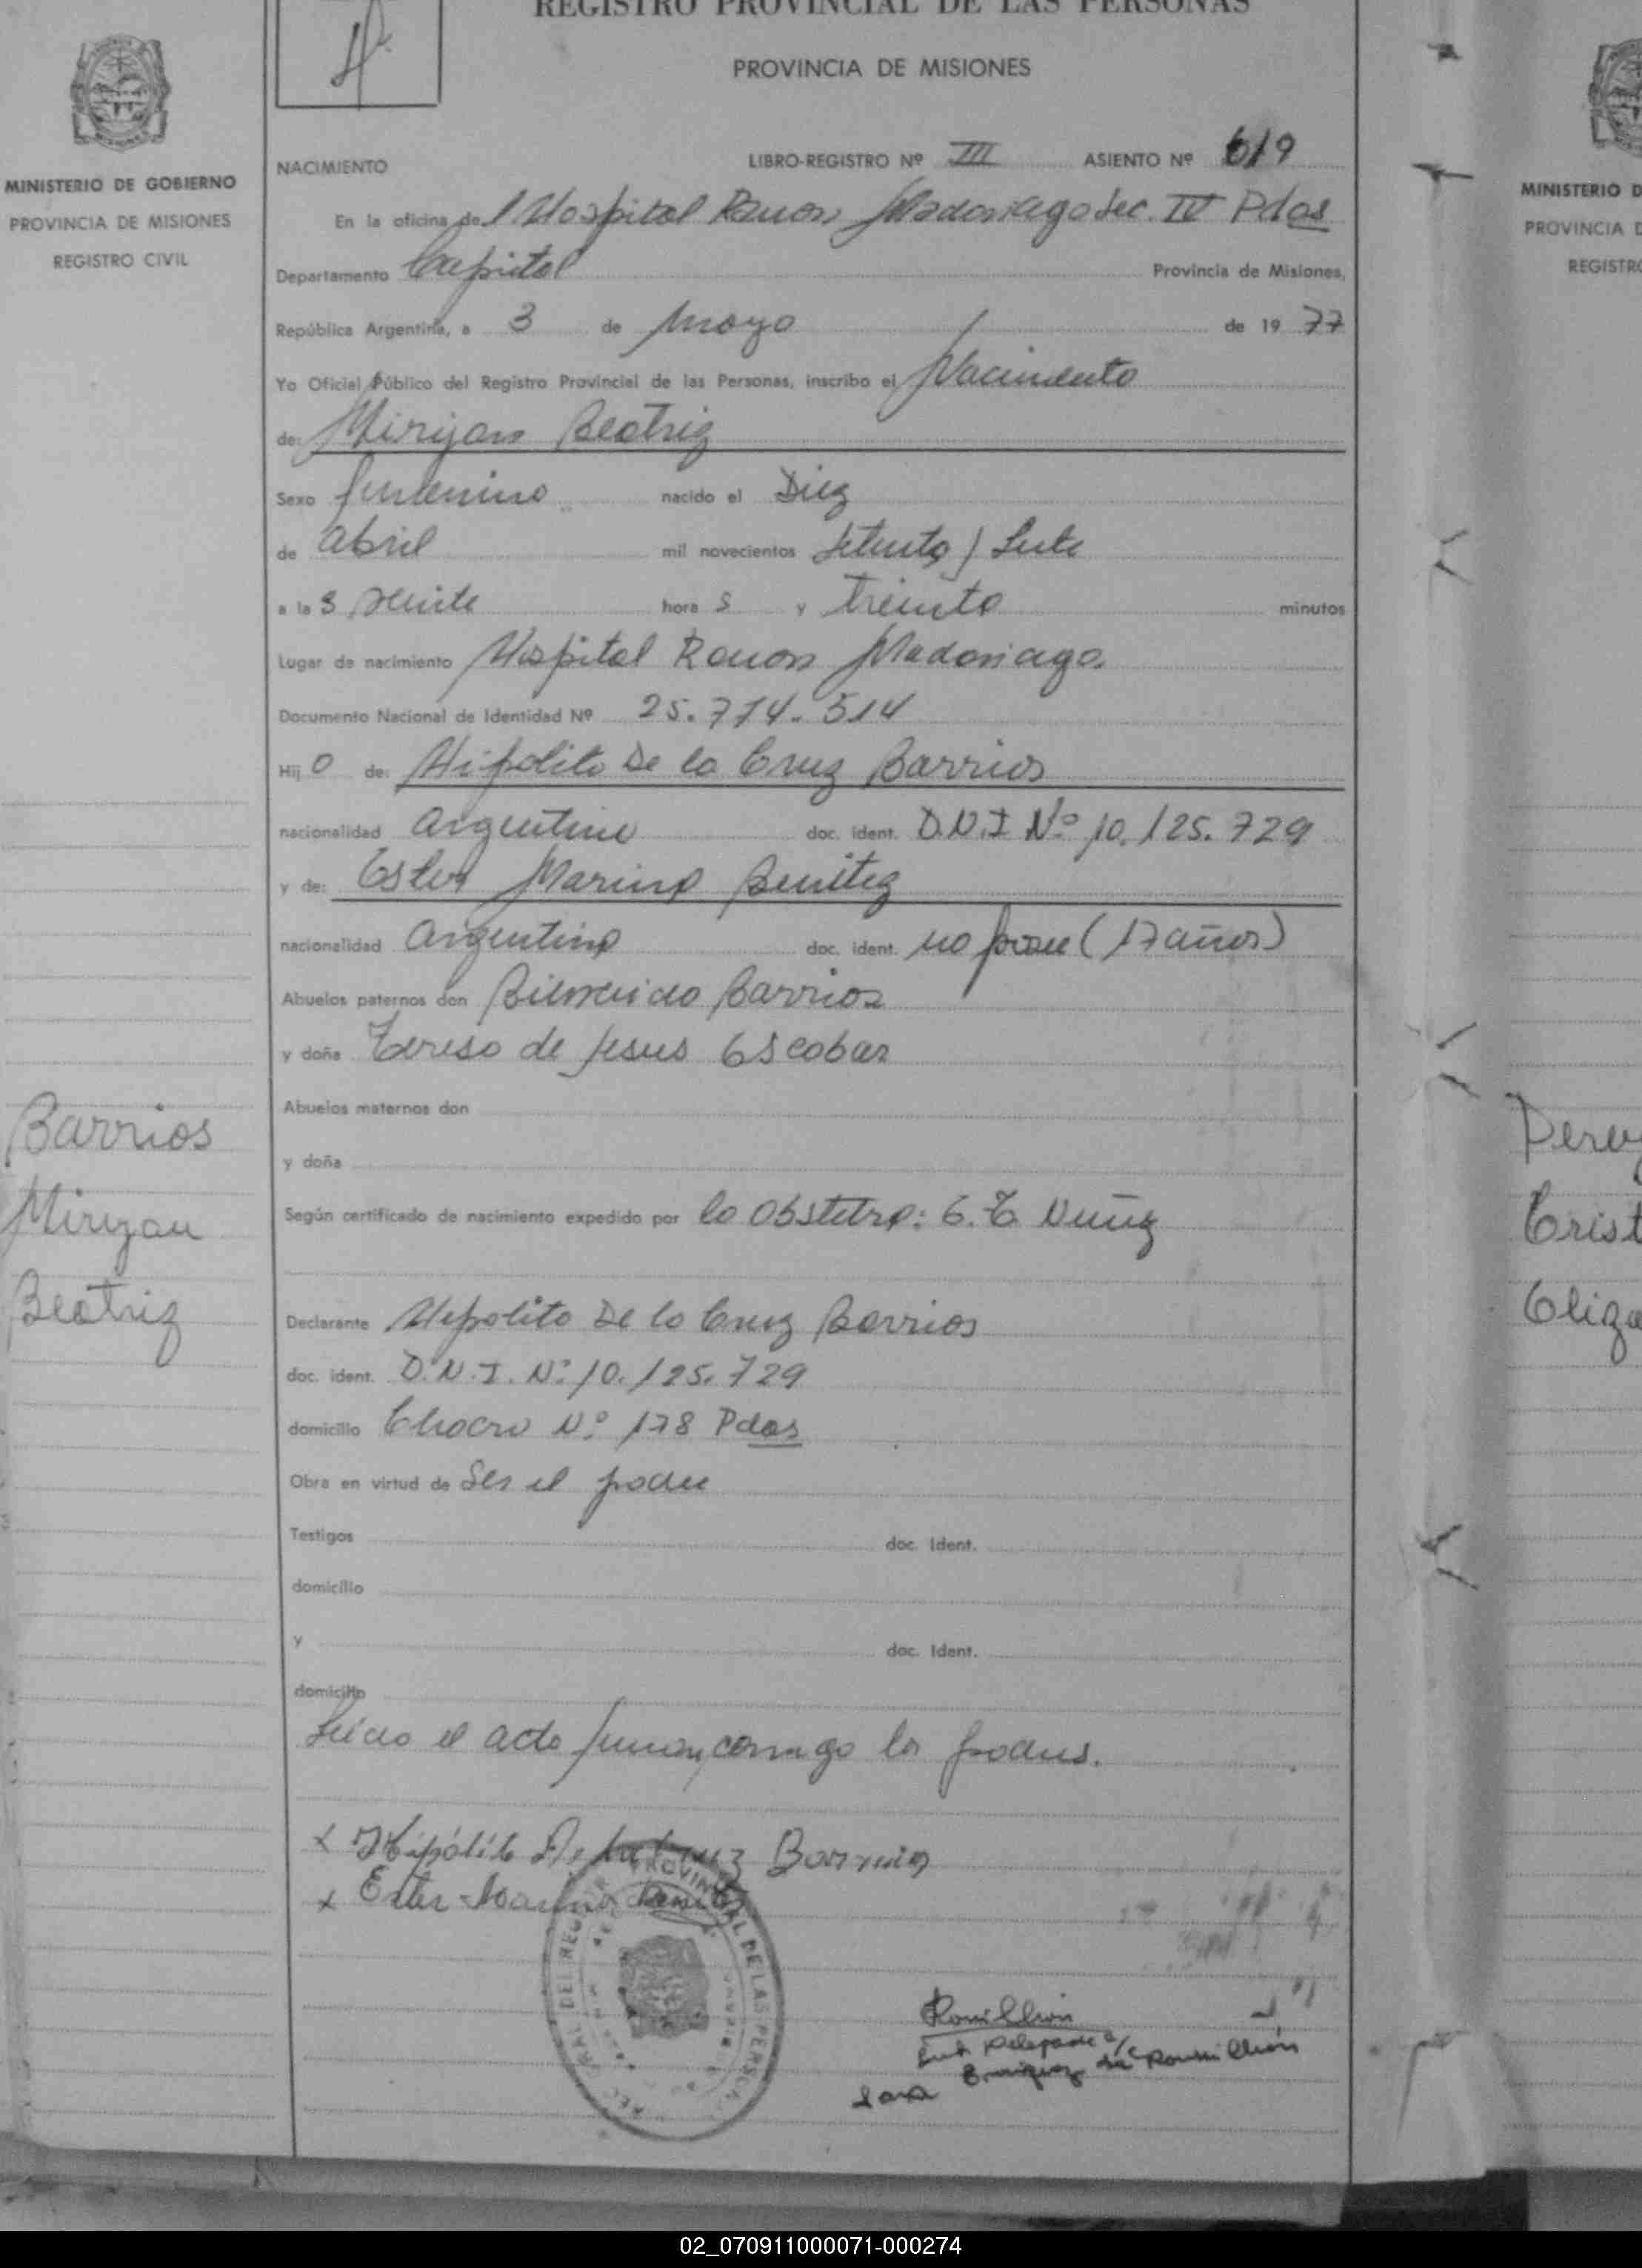 REGISTRO PROVINCIAL DE LAS PERSONAS
PROVINCIA DE MISIONES
MINISTERIO DE GOBIERNO
PROVINCIA DE MISIONES
REGISTRO CIVIL
NACIMIENTO LIBRO-REGISTRO Nº III ASIENTO Nº 619
En la oficina del Hospital Ramon Madariaga Sec. IV Pdas
Departamento Capital Provincia de Misiones,
República Argentina, a 3 de mayo de 1977
Yo Oficial Público del Registro Provincial de las Personas, inscribo el Nacimiento
de: Miriyan Beatriz
Sexo femenino nacido el Diez
de abril mil novecientos Setenta y Siete
a las veinte horas y treinta minutos
Lugar de nacimiento Hospital Ramon Madariaga
Documento Nacional de Identidad Nº 25.714.514
Hijo de: Hipolito De la Cruz Barrios
nacionalidad argentino doc. ident. D.N.I Nº 10.125.729
y de: Ester Marina Benitez
nacionalidad argentina doc. ident. no posee (17 años)
Abuelos paternos don Bienvenido Barrios
y doña Teresa de Jesus Escobar
Abuelos maternos don
y doña
Barrios
Miryan
Beatriz
Según certificado de nacimiento expedido por la Obstetra: Nuñez
Declarante Hipolito De la Cruz Barrios
doc. ident. D.N.I. Nº 10.125.729
domicilio Chacra Nº 178 Pdas
Obra en virtud de Ser el padre
Testigos doc. Ident.
domicilio
y doc. Ident.
domicilio
Leido el acta firman conmigo los padres.
x Hipólito De la Cruz Barrios
x Ester Marina Benitez
Roumillion
Sub Delegada
Sara Enriquez de Roumillion
MINISTERIO D
PROVINCIA D
REGISTRO
Perey
Crist
Eliza
02_070911000071-000274